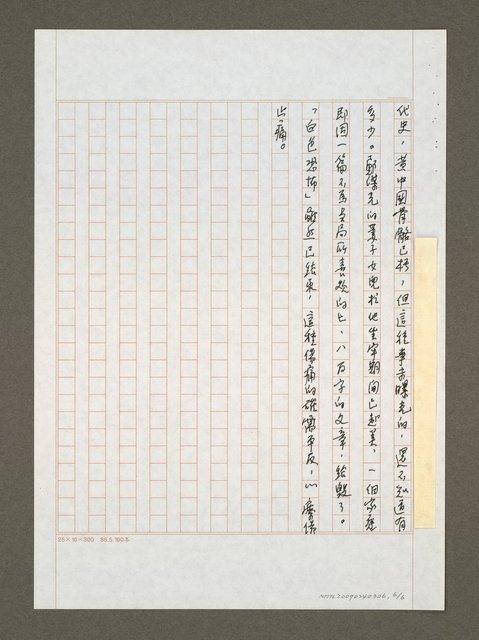 代史，黃中國骨骼已朽，但這種事未曝光的，還不知道有
多少。郭 光的妻子女兒於他坐牢期間已赴美，一個家庭
即因一篇不為當局所喜歡的七、八万字的文章，給毀了。
「白色恐怖」雖然已結束，這種傷痛的確需平反，以療傷
止痛。
25×10=300 86.5.100本
NMTL20090240306, 6/6